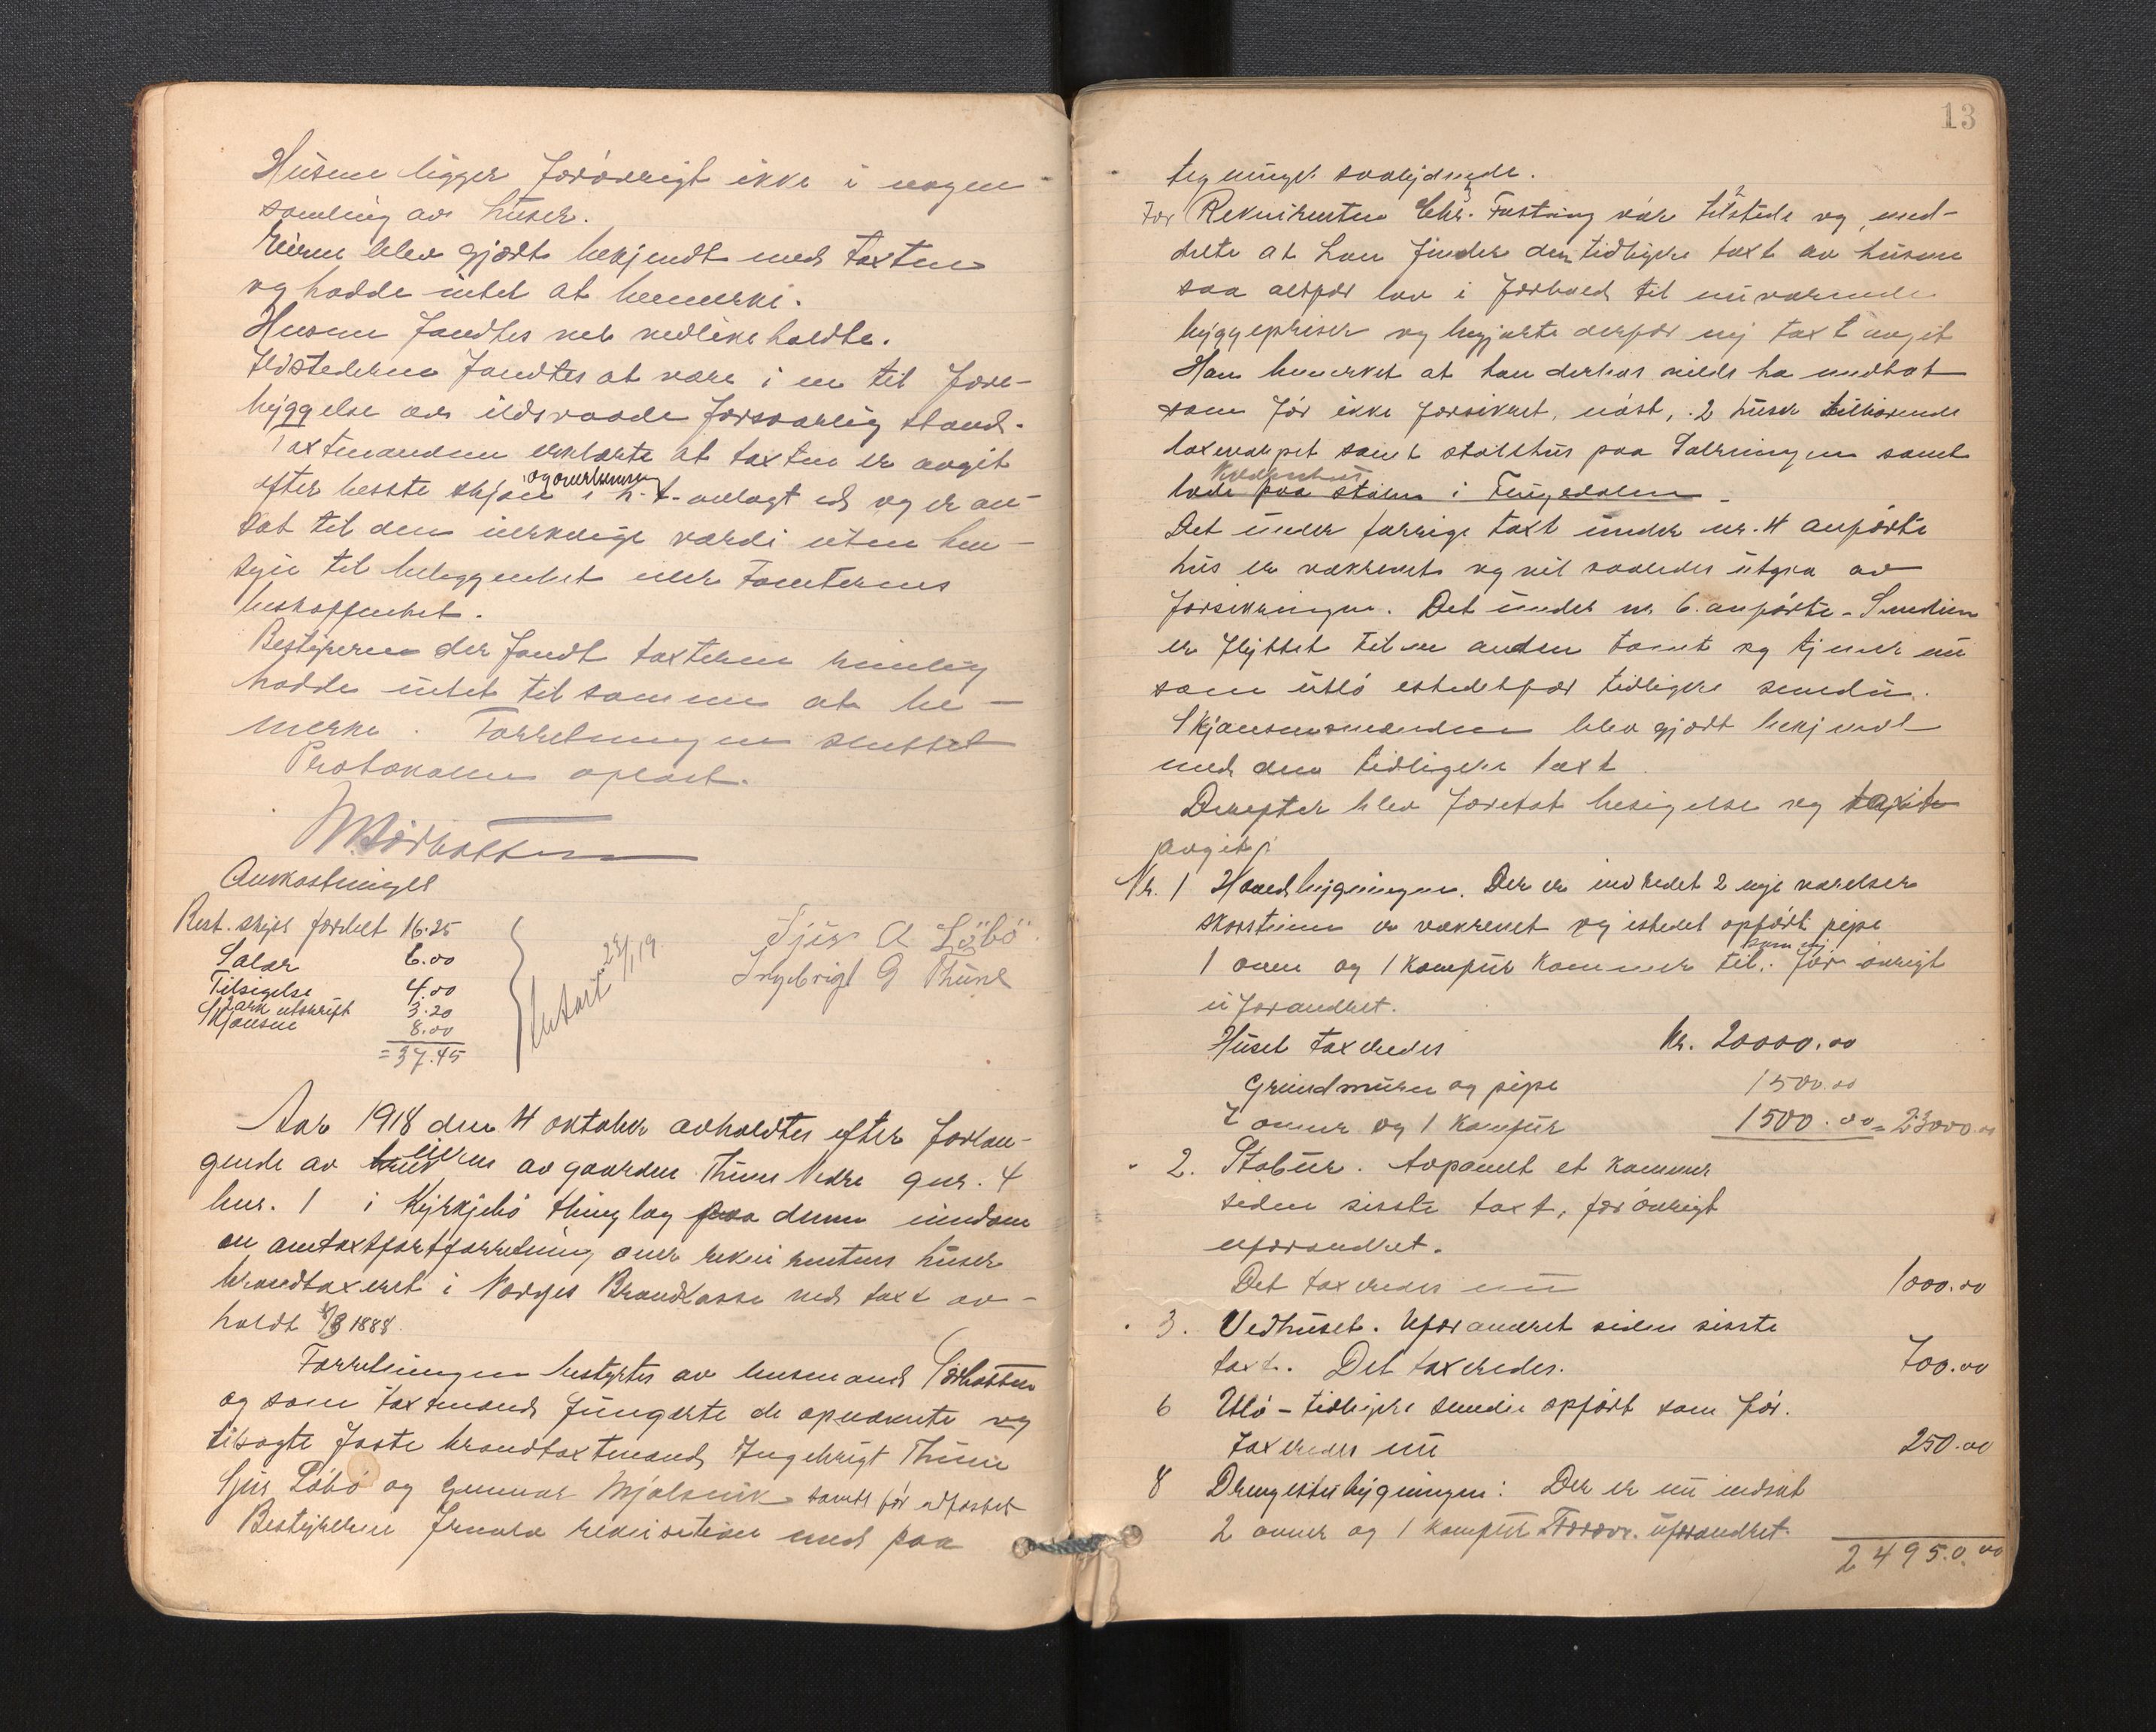 Husene ligger forøvrigt ikke i nogen
samling av huser.
Eieren blev gjørt bekjendt med taxten
og hadde intet at bemerke.
Husene fandtes vel vedlikeholdte.
Ildstederne fandtes at være i en til fore-
byggelse av ildsvaade forsvarlig stand.
Taxtmændene erklærte at taxten er avgit
efter beste skjøn og overbevisning i h. t. avlagt ed og er an-
sat til den virkelige værdi uten hen-
syn til beliggenhet eller tomternes
beskaffenhet.
Bestyreren der fandt taxterne rimelig
hadde intet til samme at be-
merke. Forretningen sluttet
Protokollen oplæst.
Omkostninger
Rest. skyds fordelt 16.25
Salær 6.00
Tilsigelse 4.00
2 ark utskrift 3.20
Skjønsm 8.00
= 37.45
23/1 19.
Sjur A Løbø
Ingebrigt G Thune
Aar 1918 den 4 oktober avholdtes efter forlan-
gende av eieren av gaarden Thune Nedre gnr. 4
bnr. 1 i Kyrkjebø thinglag paa denne eiendom
en omtaxtforretning over rekvirentens huser
brandtaxeret i Norges Brandkasse ved taxt av-
holdt 1888.
Forretningen bestyrtes av lensmand Sørbotten
og som taxtmænd fungerte de opnævnte og
tilsagte faste brandtaxtmænd Ingebrigt Thune
Sjur Løbø og Gunnar Mjølsvik samtl før edfæstet
Bestyreren fremla rekvisition med paa
13
tegninger saalydende.
Rekvirenten Chr. Fastning var tilstede og med-
delte at han finder den tidligere taxt av husene
saa altfor lav i forhold til nuværende
byggepriser og begjærte derfor ny taxt avgit
Han bemerket at han derhos vilde ha medtat
som før ikke forsikret, nøst, 2 huser tilhørende
laxevarpet samt stølshus paa Sætringen samt
løde paa stølen i Fuggedalen.
Det under forrige taxt under nr. 4 anførte
hus er nedrevet og vil saaledes utgaa av
forsikringen. Det under nr 6. anførte - Smedien
er flyttet til en anden tomt og tjener nu
som utlø istedetfor tidligere smedie.
Skjønsmændene blev gjørt bekjendt
med den tidligere taxt
Derefter blev foretat besigtelse og taxter
avgit:
Nr. 1 Hovedbygningen. Der er indredet 2 nye værelser
skorstenen er nedrevet og istedet opført pipe
1 ovn og 1 komfur kommer til. For øvrigt
uforandret.
Huset taxeredes Kr. 20000.00
Grundmuren og pipe 1500.00
7 ovner og 1 komfur 1500.00 = 23000.00
2. Stabur. Avpanelt et kammer
siden sisste taxt, for øvrigt
uforandret.
Det taxeredes nu 1000.00
3. Vedhuset. Uforandret siden sisste
taxt. Det taxeredes. 700.00
6 Utlø - tidligere smedie opført som før.
taxeredes nu 250.00
8 Drengestubygningen: Der er nu indsat
2 ovner og 1 komfur Forøvr. uforandret.
24950.00